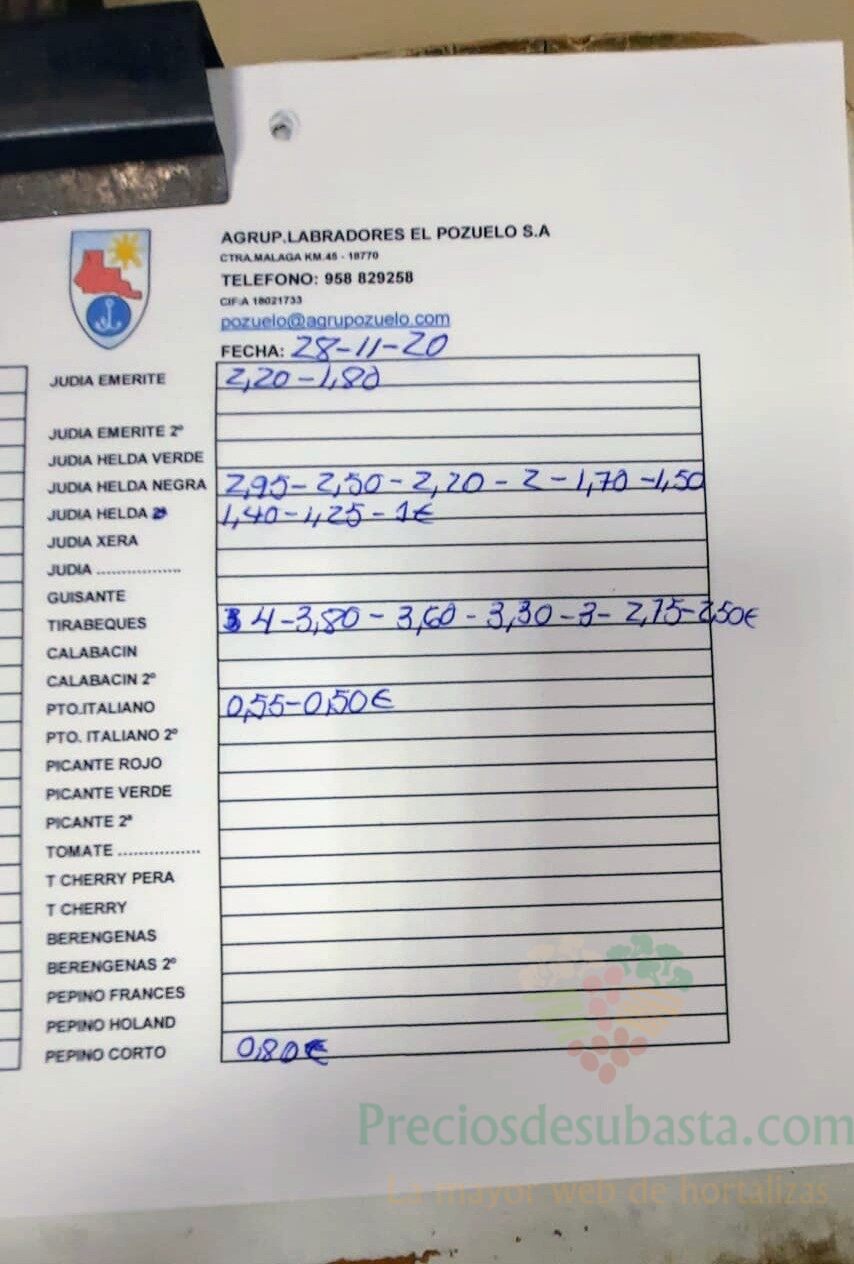 AGRUP.LABRADORES EL POZUELO S.A
CTRA.MALAGA KM.45 - 18770
TELEFONO: 958 829258
CIF:A 18021733
pozuelo@agrupozuelo.com
FECHA: 28-11-20
JUDIA EMERITE 2,20-1,80
JUDIA EMERITE 2º
JUDIA HELDA VERDE
JUDIA HELDA NEGRA 2,95-2,50-2,20-2-1,70-1,50
JUDIA HELDA 2ª 1,40-1,25-1€
JUDIA XERA
JUDIA ..................
GUISANTE
TIRABEQUES 4-3,80-3,60-3,30-3-2,75-2,50€
CALABACIN
CALABACIN 2º
PTO.ITALIANO 0,55-0,50€
PTO. ITALIANO 2º
PICANTE ROJO
PICANTE VERDE
PICANTE 2ª
TOMATE ................
T CHERRY PERA
T CHERRY
BERENGENAS
BERENGENAS 2º
PEPINO FRANCES
PEPINO HOLAND
PEPINO CORTO 0,80€
Preciosdesubasta.com
La mayor web de hortalizas